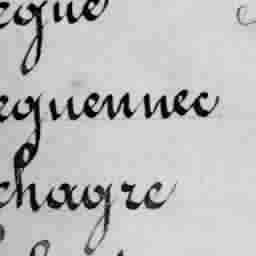 egue
eguennec
chagre